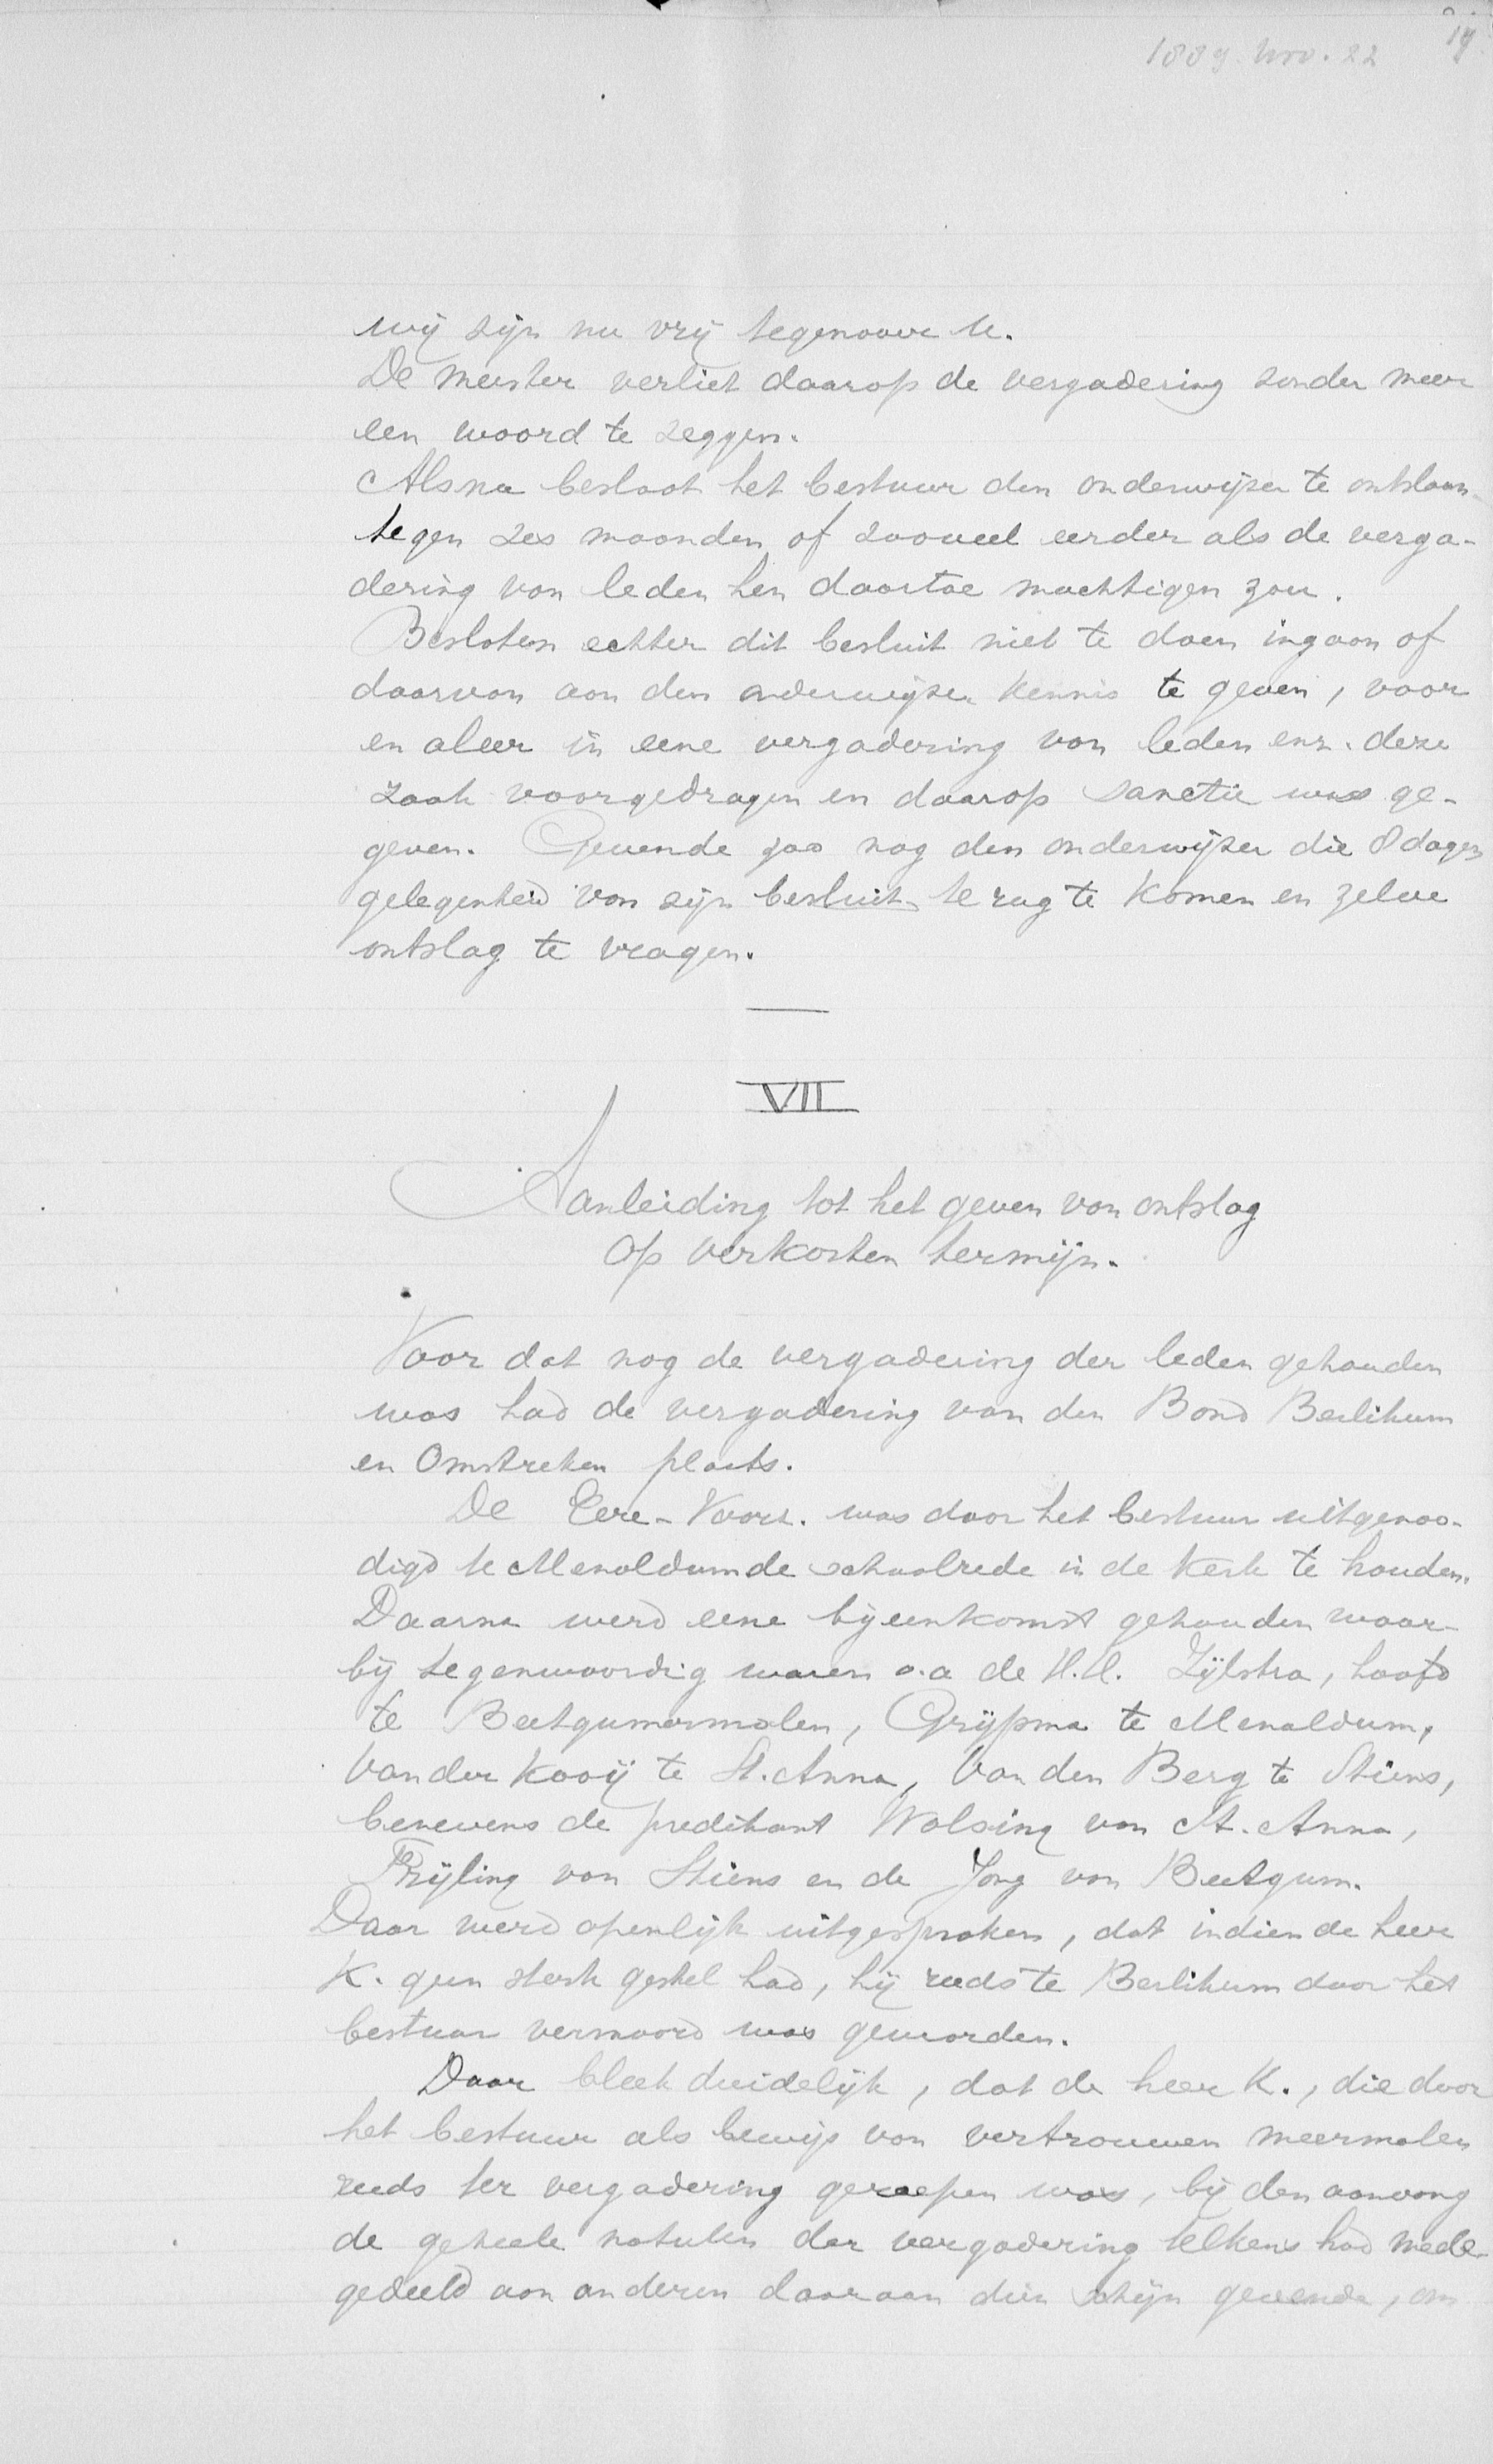 1889. Nov. 22
wij zijn nu vrij tegenover U.
De meester verliet daarop de vergadering zonder meer
een woord te zeggen.
Alsnu besloot het bestuur den onderwijzer te ontslaan
tegen zes maanden of zooveel eerder als de verga-
dering van leden hen daartoe machtigen zou.
Besloten echter dit besluit niet te doen ingaan of
daarvan aan den onderwijzer kennis te geven, voor
en aleer in eene vergadering van leden enz. deze
zaak voorgedragen en daarop sanctie was ge-
geven. Gevende zoo nog den onderwijzer die 8 dagen
gelegenheid van zijn besluit terug te komen en zelve
ontslag te vragen.
VII
Aanleiding tot het geven van ontslag
op verkorten termijn.
Voor dat nog de vergadering der leden gehouden
was had de vergadering van den Bond Berlikum
en Omstreken plaats.
De Eere-Voorz. was door het bestuur uitgenoo-
digd te Menaldum de schoolrede in de Kerk te houden.
Daarna werd eene bijeenkomst gehouden waar-
bij tegenwoordig waren o.a de H.H. Zijlstra, hoofd
te Beetgumermolen, Grijpma te Menaldum,
Van der Kooij te St. Anna, Van den Berg te Stiens,
benevens de predikant Wolsing van St. Anna,
Frijling van Stiens en de Jong van Beetgum.
Daar werd openlijk uitgesproken, dat indien de heer
K. geen sterk gestel had, hij reeds te Berlikum door het
bestuur vermoord was geworden.
Daar bleek duidelijk, dat de heer K., die door
het bestuur als bewijs van vertrouwen meermalen
reeds ter vergadering geroepen was, bij den aanvang
de geheele notulen der vergadering telkens had mede-
gedeeld aan anderen daaraan dien schijn gevende, om